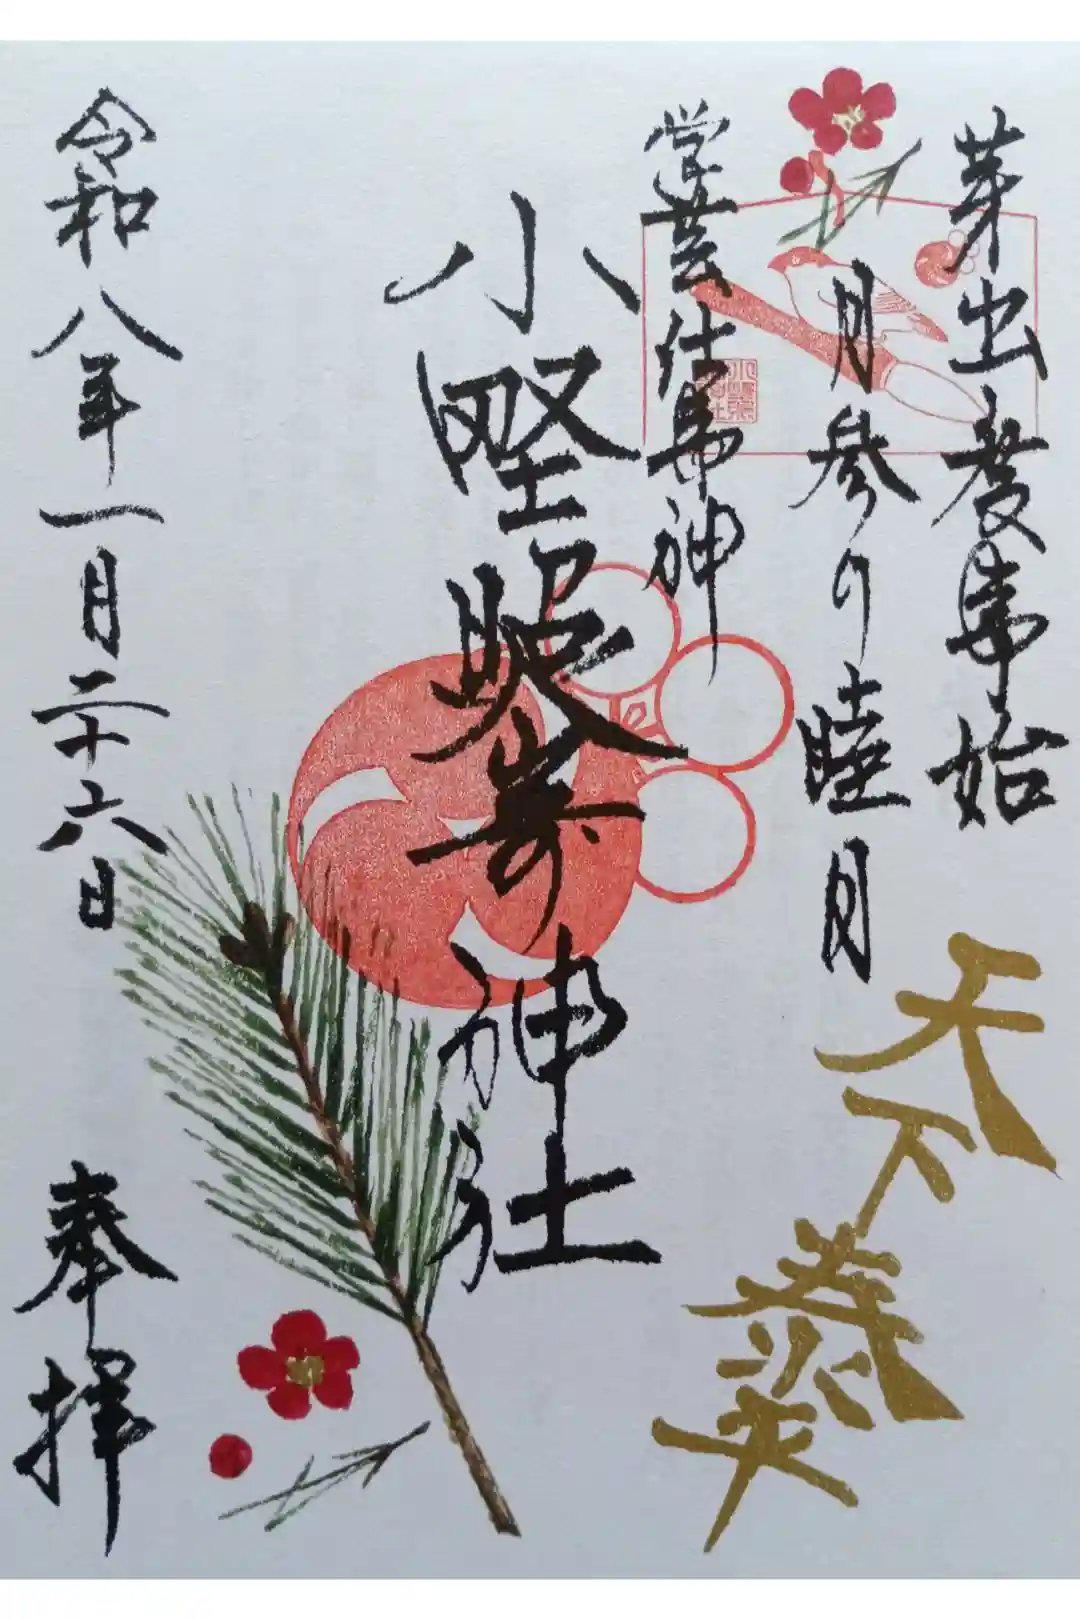 芽出度事始
月参り 睦月
天下泰平
学芸仕事神
小野照嵜神社
令和八年一月二十六日
奉拝